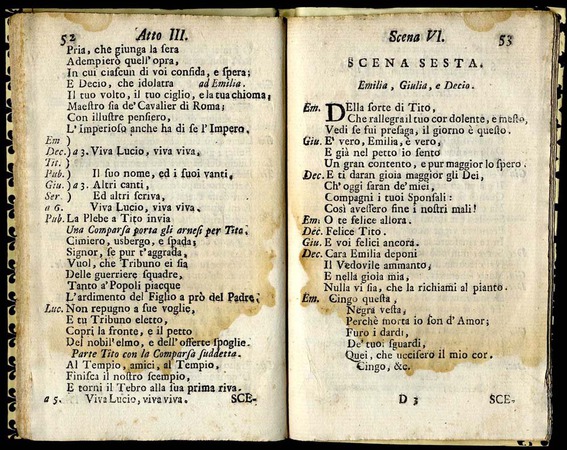 52 Atto III.
Pria, che giunga la sera
Adempierò quell'opra,
In cui ciascun di voi confida, e spera;
E Decio, che idolatra ad Emilia.
Il tuo volto, il tuo ciglio, e la tua chioma,
Maestro sia de' Cavalier di Roma;
Con illustre pensiero,
L'imperioso anche ha di se l'Impero.
Em )
Dec. ) a 3. Viva Lucio, viva viva,
Tit. )
Pub. ) Il suo nome, ed i suoi vanti,
Giu. ) a 3. Altri canti,
Ser ) Ed altri scriva,
a 6. Viva Lucio, viva viva.
Pub. La Plebe a Tito invia
Una Comparsa porta gli arnesi per Tito.
Cimiero, usbergo, e spada;
Signor, se pur t'aggrada,
Vuol, che Tribuno ei sia
Delle guerriere squadre,
Tanto a' Popoli piacque
L'ardimento del Figlio a prò del Padre.
Luc. Non repugno a sue voglie,
E tu Tribuno eletto,
Copri la fronte, e il petto
Del nobil'elmo, e dell'offerte spoglie.
Parte Tito con la Comparsa suddetta.
Al Tempio, amici, al Tempio,
Finisca il nostro scempio,
E torni il Tebro alla sua prima riva.
a 5. Viva Lucio, viva viva. SCE-
Scena VI. 53
SCENA SESTA.
Emilia, Giulia, e Decio.
Em. DElla sorte di Tito,
Che rallegra il tuo cor dolente, e mesto,
Vedi se fui presaga, il giorno è questo.
Giu. E' vero, Emilia, è vero,
E già nel petto io sento
Un gran contento, e pur maggior lo spero.
Dec. E ti daran gioia maggior gli Dei,
Ch'oggi saran de' miei,
Compagni i tuoi Sponsali:
Così avessero fine i nostri mali!
Em. O te felice allora.
Dec. Felice Tito.
Giu. E voi felici ancora.
Dec. Cara Emilia deponi
Il Vedovile ammanto,
E nella gioia mia,
Nulla vi sia, che la richiami al pianto.
Em. Cingo questa,
Negra vesta,
Perchè morta io son d'Amor;
Furo i dardi,
De' tuoi sguardi,
Quei, che uccisero il mio cor.
Cingo, &c.
D 3 SCE-